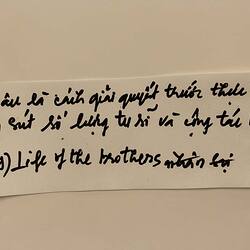 âu là cách giải quyết trước thực
sút số lượng tu sĩ và cộng tác
) Life of the brothers nhân sự